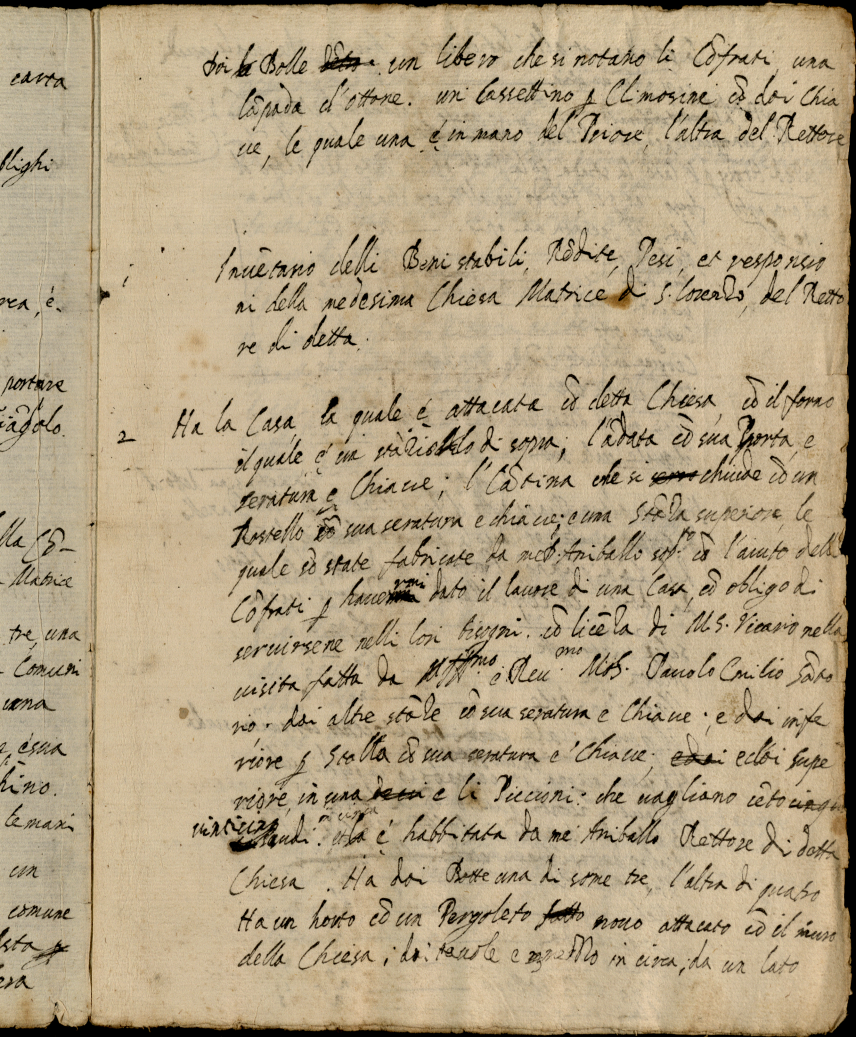 carta
blighi
portare
Matrice
tre, una
Comuni
un
comune
doi le Bolle detta un libero che si notano li Cõfrati, una
lãpada d'ottone. un Cassettino ꝑ Elimosine cõ doi Chia
ve, le quale una é in mano del Priore, l'altra del Rettore
1
Invẽtario delli Beni stabili, Rẽdite, Pesi, et responsio
ni della medesima Chiesa Matrice di S. Lorenzo, del Retto
re di detta.
2 Ha la Casa, la quale é attacata cõ detta Chiesa, cõ il forno
il quale é un di sopra; l'ãdata cõ sua Porta, e
seratura e Chiave; l'Cãtina che si serra chiude cõ un
Rastello cõ sua seratura e chiave; e una stãza superiore, le
quale sõ state fabricate da me Aniballo sop.to cõ l'aiuto delli
Cõfrati ꝑ havermi dato il lauore di una Casa, cõ obligo di
servirsene nelli lori bisogni. cõ licẽza di M.S. Vicario nella
visita fatta da Ill.mo e Reu.mo MõS. Pauolo Emilio Sãto
rio. doi altre stãze cõ sua seratura e Chiave; e doi infe
riore ꝑ stalla cõ sua seratura e Chiave; e doi e doi supe
riore, in una e li Piccioni: che vagliano cẽto cinqu
vinticinq scudi in circa é habbitata da me Aniballo Rettore di detta
Chiesa. Ha doi Botte una di some tre, l'altra di quatro
Ha un horto cõ un Pergoleto fatto novo attacato cõ il muro
della Chiesa; doi tavole e in circa; da un lato